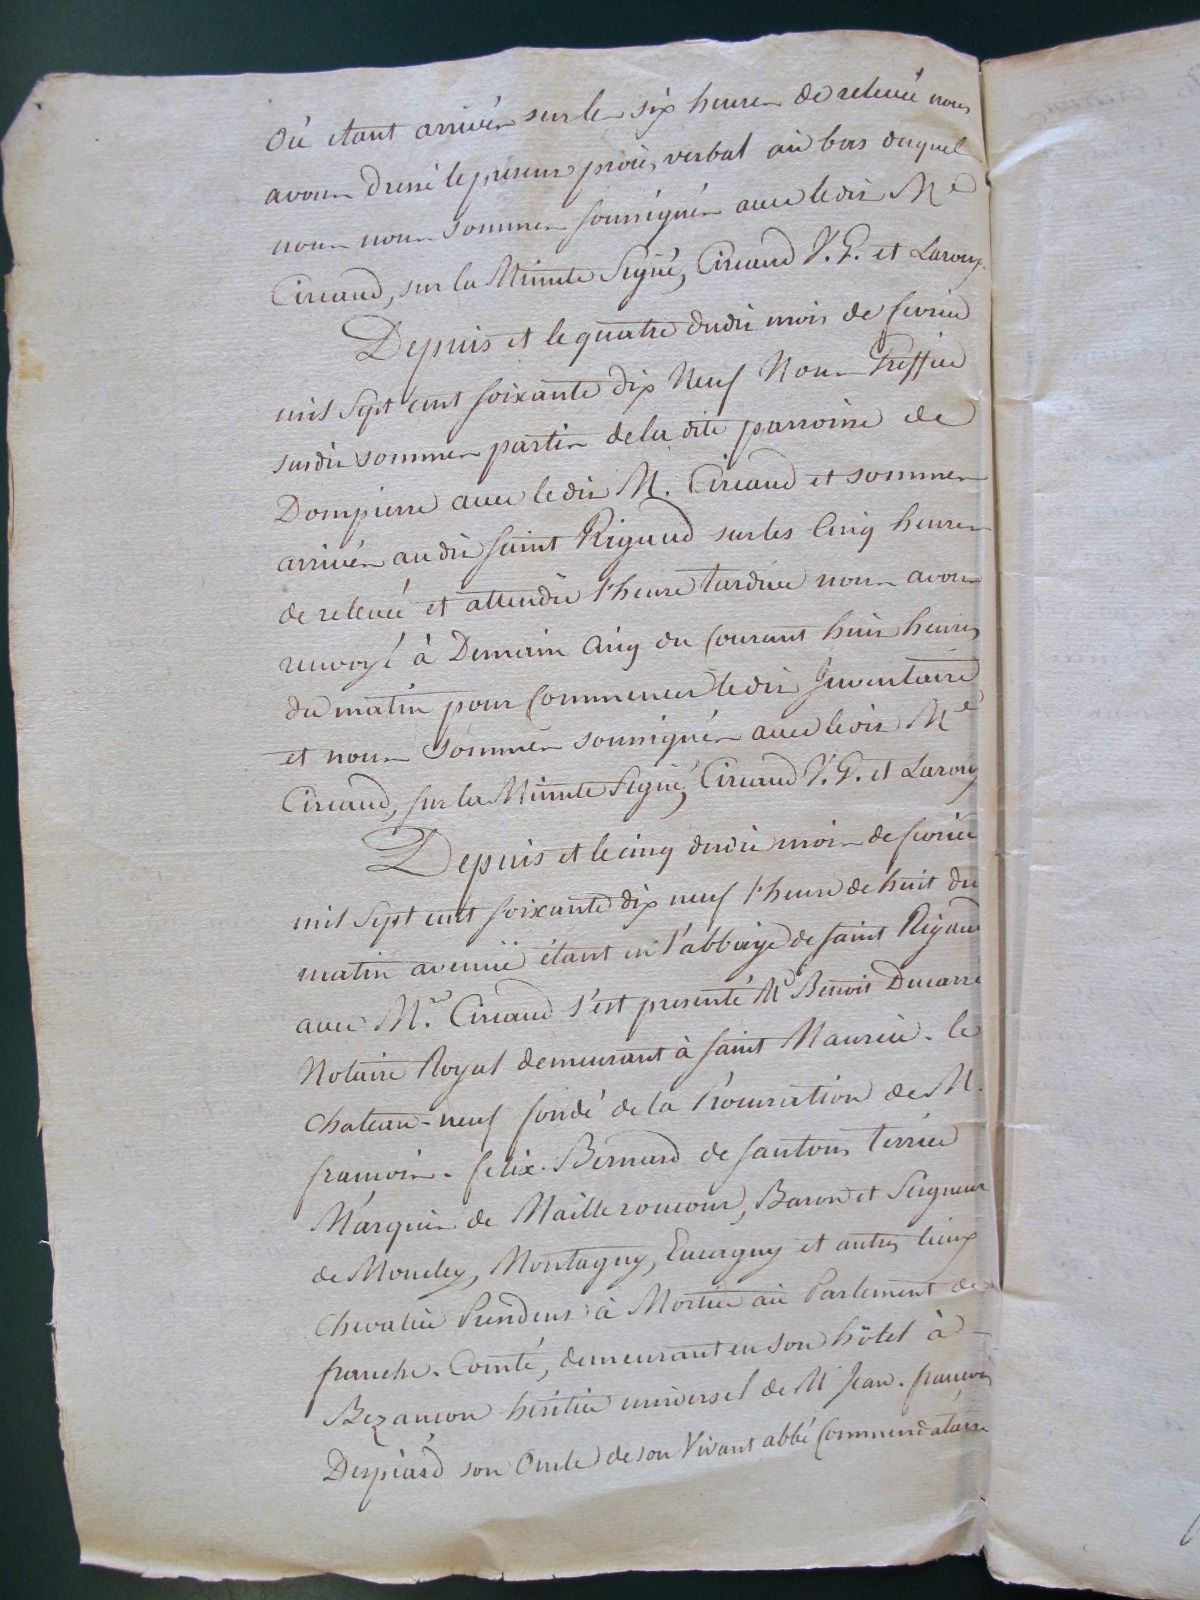 Où etant arrivés sur les six heures de relevée nous
avons dressé le present procès, verbal au bas duquel
nous nous sommes soussignés avec ledit Me
Circaud, sur la Minute Signé, Circaud V. G. et Laroux.
Depuis et le quatre dudit mois de fevrier
mil Sept cent soixante dix Neuf Nous Greffier
susdit sommes partis de la dite parroisse de
Dompierre avec ledit M. Circaud et sommes
arrivés audit saint Rigaud sur les Cinq heures
de relevée et attendu l'heure tardive nous avons
renvoyé à Demain Cinq du Courant huit heures
du matin pour Commencer ledit Inventaire
et nous sommes soussignés avec ledit Me
Circaud, sur la Minute Signé, Circaud V. G. et Laroux
Depuis et le cinq dudit mois de fevrier
mil Sept cent soixante dix neuf l'heure de huit du
matin avenuë étant en l'abbaye de saint Rigaud
avec Mr. Circaud s'est presenté Me Benoit Ducarre
Notaire Royal demeurant à saint Maurice - le
chateau - neuf fondé de la Procuration de M.
francois - felix - Bernard de santons Terrier
Marquis de Mailleroncour, Baron et Seigneur
de Moncley, Montagny, Cuvergny et autres lieux
Chevalier President à Mortier au Parlement de
franche - Comté, demeurant en son hôtel à -
Bezancon heritier universel de M Jean - francois
Despiard son Oncle de son Vivant abbé Commendataire